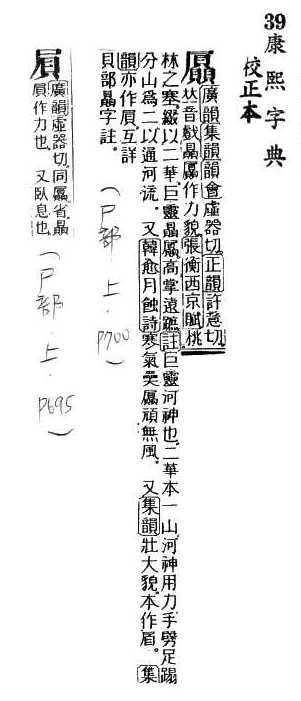 39康熙字典
校正本
屭 廣韻集韻韻會虛器切.正韻許意切.
𠀤音齂.贔屭作力貌.張衡西京賦桃
林之塞.綴以二華.巨靈贔屭.高掌遠蹠.註巨靈河神也.二華本一山.河神用力手劈足蹋
分山爲二以通河流. 又韓愈月蝕詩寒氣奰屭頑無風. 又集韻壯大貌.本作眉。集
韻亦作屓互詳
貝部贔字註.
(尸部.上.
P700)
屓 廣韻虛器切.同屭省.贔
屓作力也. 又臥息也.
(尸部.上.
P695)